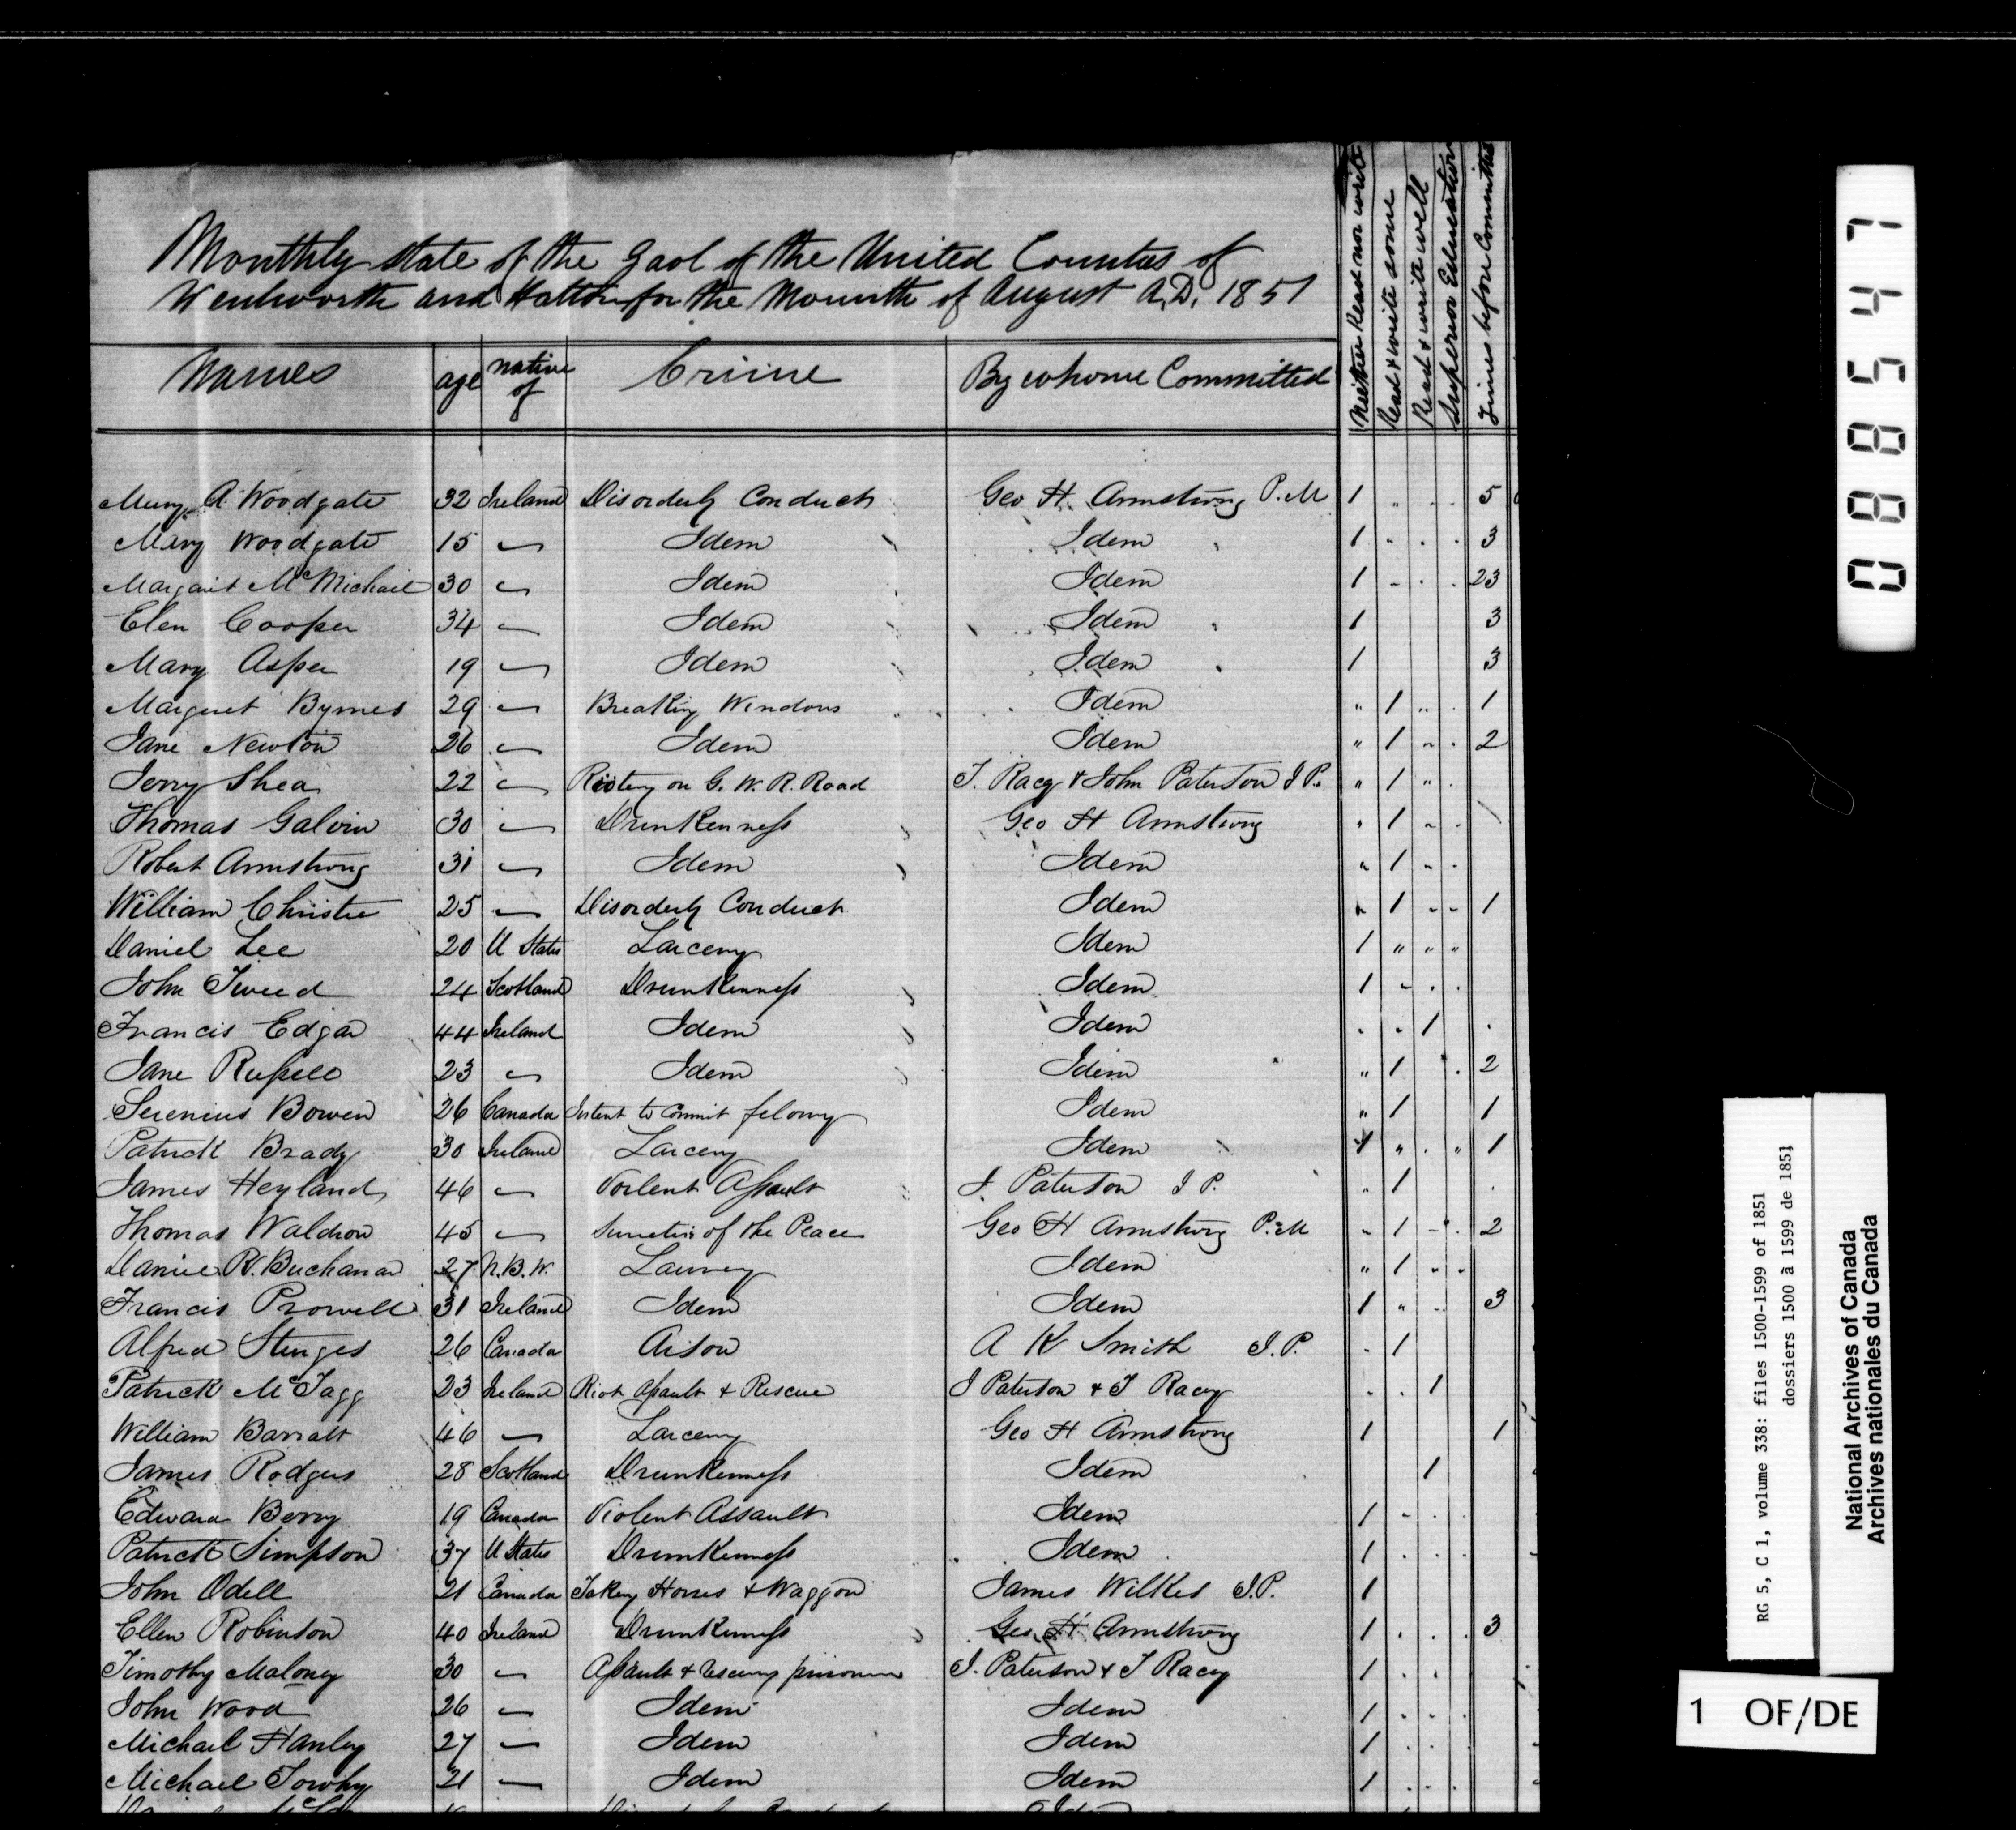 Monthly state of the Gaol of the United Counties of
Wentworth and Halton for the Mounth of August A.D. 1851
Names age native of Crime By whome Committed Neither Read nor write Read & write some Read & write well Superior Education Times before Committed
Mary A Woodgate 32 Ireland Disorderly Conduct Geo H. Armstrong P.M 1 5
Mary Woodgate 15 — Idem Idem 1 3
Margait McMichail 30 — Idem Idem 1 23
Elen Cooper 34 — Idem Idem 1 3
Mary Asper 19 — Idem Idem 1 3
Marguret Byrnes 29 — Breaking Windows Idem " 1 1
Jane Newton 26 — Idem Idem " 1 2
Jerry Shea 22 — Rioting on G. W. R. Road T. Racy & John Paterson J P. " 1 "
Thomas Galvin 30 — Drunkenness Geo H Armstrong 1
Robert Armstrong 31 — Idem Idem " 1
William Christie 25 — Disorderly Conduct Idem 1 1
Daniel Lee 20 U States Larceny Idem 1 " " "
John Tweed 24 Scotland Drunkenness Idem 1
Francis Edgar 44 Ireland Idem Idem 1
Jane Russell 23 — Idem Idem " 1 2
Serenius Bowen 26 Canada Intent to Commit felony Idem " 1 1
Patrick Brady 30 Ireland Larceny Idem 1 " " 1
James Heyland 46 — Voilent Assault J. Paterson J P. 1
Thomas Waldron 45 — Sureties of the Peace Geo H Armstrong P.M 1 2
Daniel R. Buchanan 27 N.B.W. Larceny Idem " 1
Francis Prowell 31 Ireland Idem Idem 1 " 3
Alfred Sturges 26 Canada Arson A K Smith J.P. 1
Patrick McTagg 23 Ireland Riot Assault & Rescue J Paterson & T Racey 1
William Barratt 46 — Larceny Geo H Armstrong 1 1
James Rodgers 28 Scotland Drunkenness Idem 1
Edward Berry 19 Canada Violent Assault Idem 1
Patrick Simpson 37 U States Drunkenness Idem 1
John Odell 21 Canada Taking Horses & Waggon James Wilkes J.P. 1
Ellen Robinson 40 Ireland Drunkenness Geo H Armstrong 1 3
Timothy Maloney 30 — Assault & rescuing prisoner J. Paterson & T Racey 1
John Wood 26 — Idem Idem 1
Michael Hanley 27 — Idem Idem 1
Michael Towhy 21 — Idem Idem 1
088547
RG 5, C 1, volume 338: files 1500-1599 of 1851
dossiers 1500 à 1599 de 1851
National Archives of Canada
Archives nationales du Canada
1 OF/DE